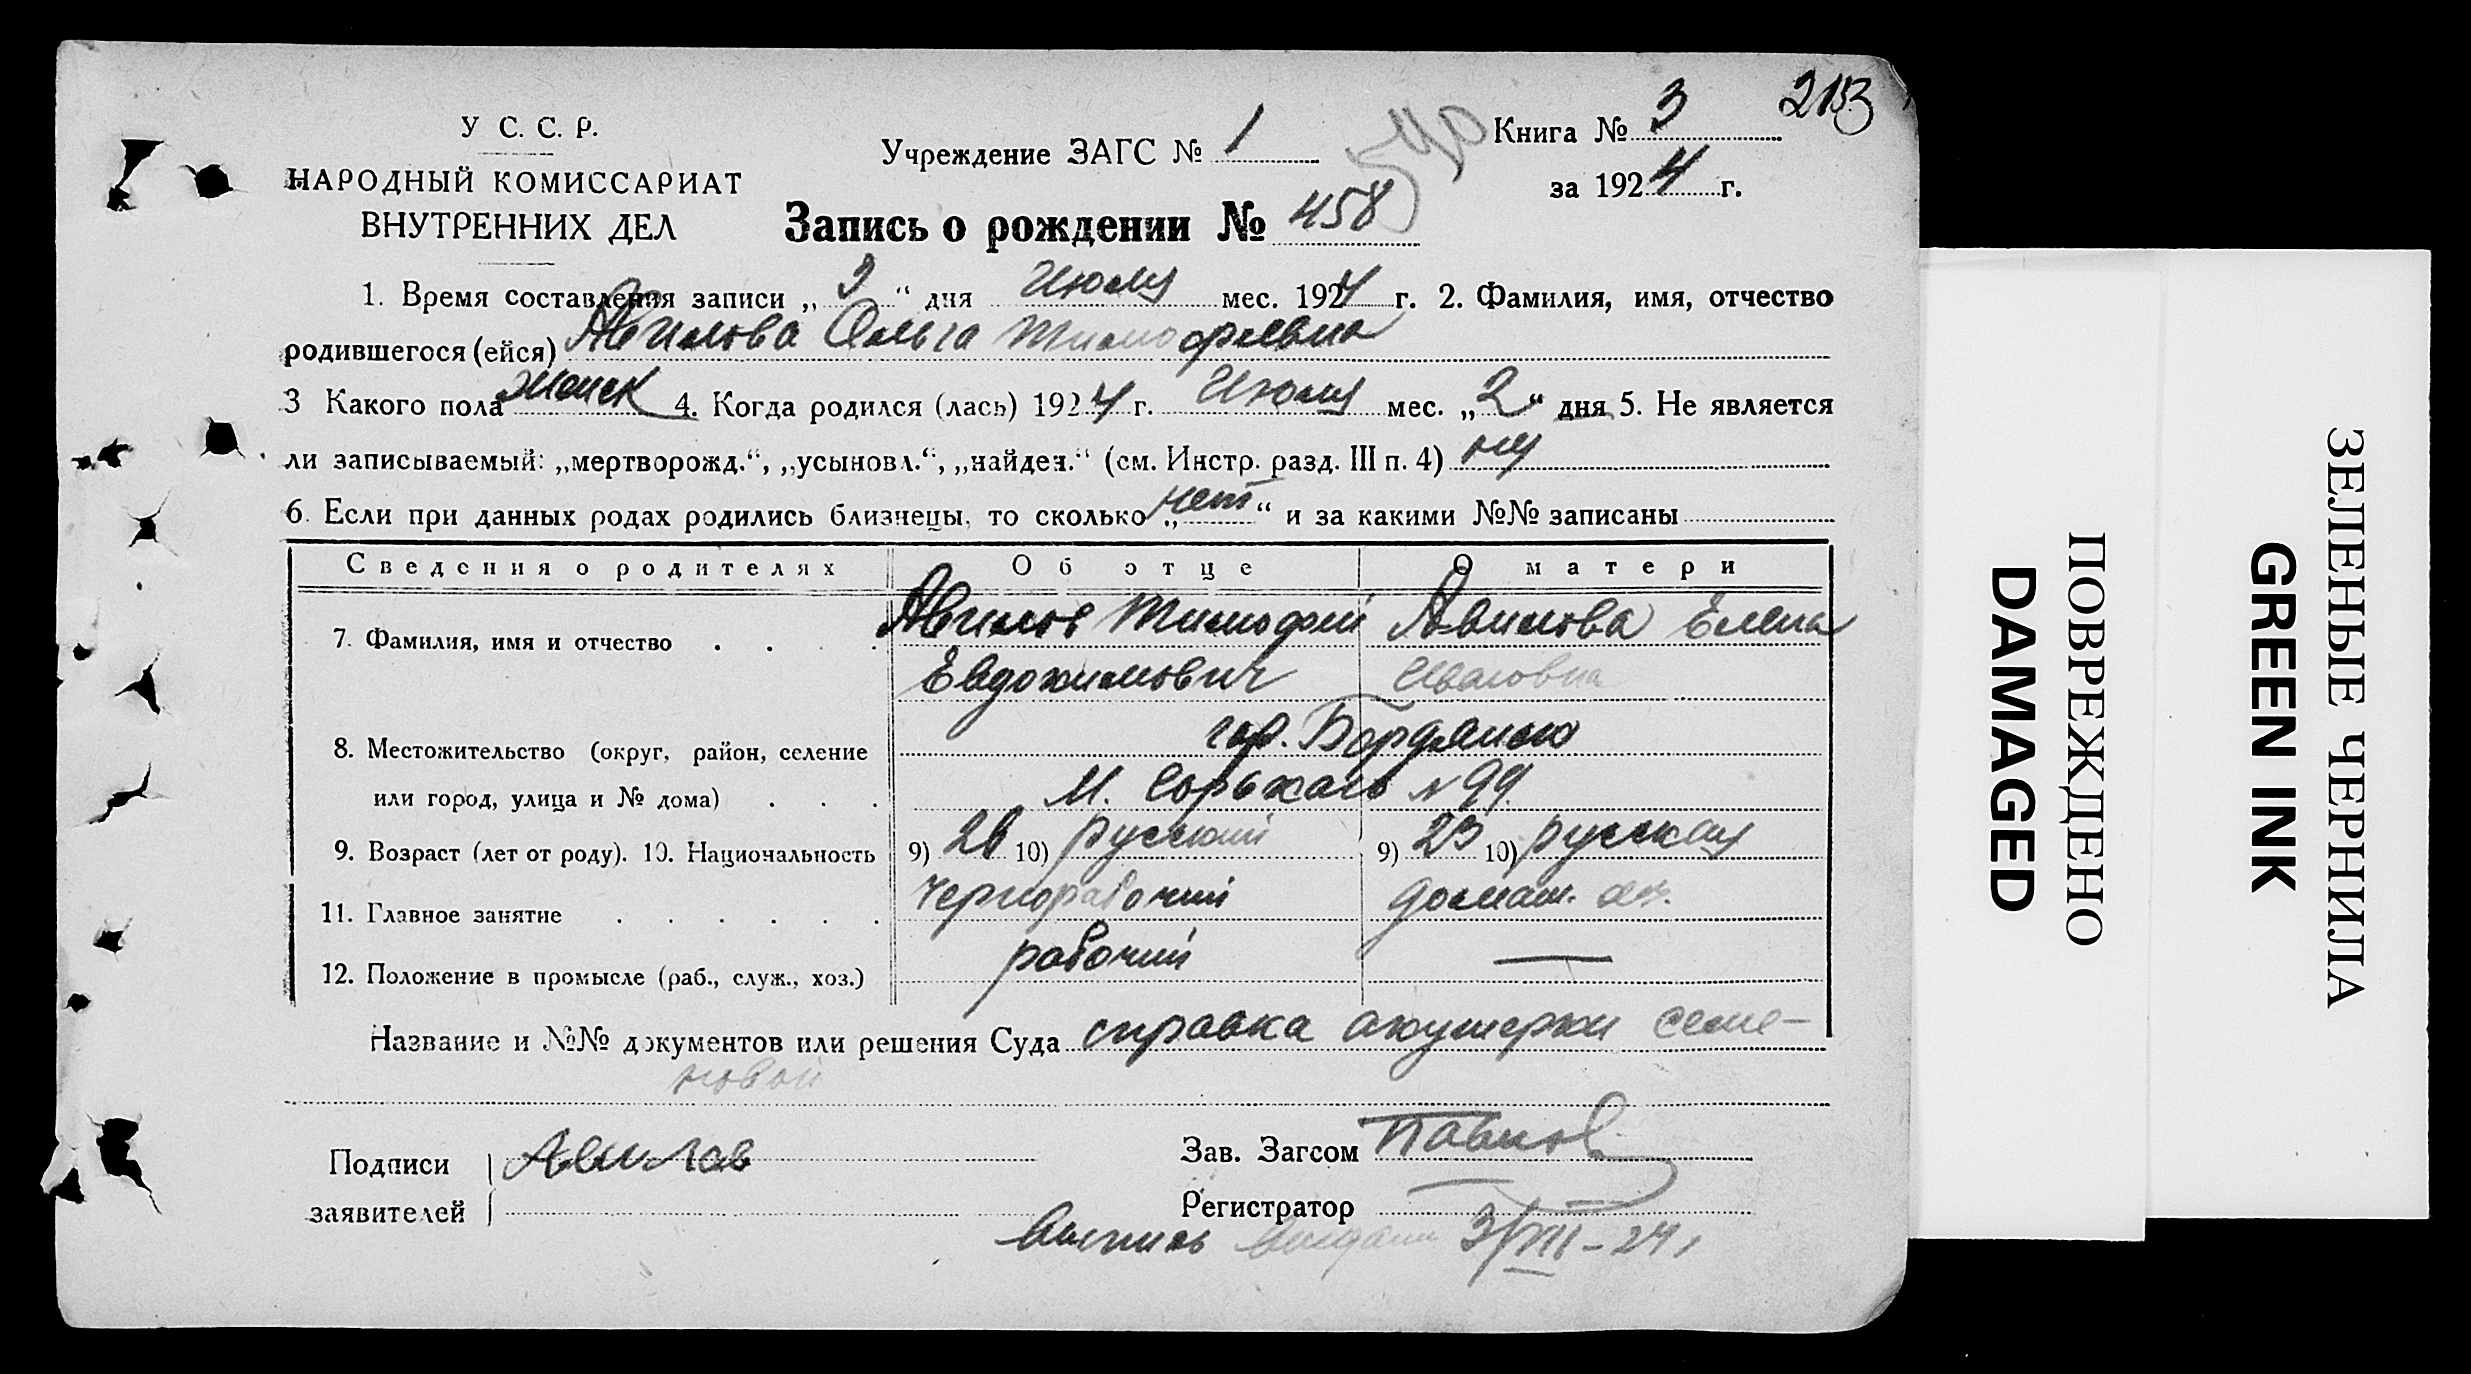 У С. С. Р.
НАРОДНЫЙ КОМИССАРИАТ
ВНУТРЕННИХ ДЕЛ
Учреждение ЗАГС № 1
540
Книга № 3
2153
за 1924 г.
Запись о рождении № 458
1. Время составления записи „3“ дня Июля мес. 1924 г. 2. Фамилия, имя, отчество
родившегося (ейся) Авилова Ольга Тимофеевна
3 Какого пола женск 4. Когда родился (лась) 1924 г. Июля мес. „2“ дня 5. Не является
ли записываемый: „мертворожд.“, „усыновл.“, „найден.“ (см. Инстр. разд. III п. 4)
6. Если при данных родах родились близнецы, то сколько „нет“ и за какими №№ записаны
Сведения о родителях Об отце О матери
7. Фамилия, имя и отчество . . . . Авилов Тимофей Авилова Елена
Евдокимович Ивановна
гор. Бердянск
8. Местожительство (округ, район, селение
или город, улица и № дома) . . . М. Горького № 99.
9. Возраст (лет от роду). 10. Национальность 9) 26 10) русский 9) 23 10) русская
11. Главное занятие . . . . . . Чернорабочий домаш. хоз.
12. Положение в промысле (раб., служ., хоз.) рабочий —
Название и №№ документов или решения Суда справка акушерки Семе-
новой
Подписи Авилов Зав. Загсом Павлов
заявителей Регистратор
Выпись выдана 3/VII-24,
ПОВРЕЖДЕНО
DAMAGED
ЗЕЛЕНЫЕ ЧЕРНИЛА
GREEN INK